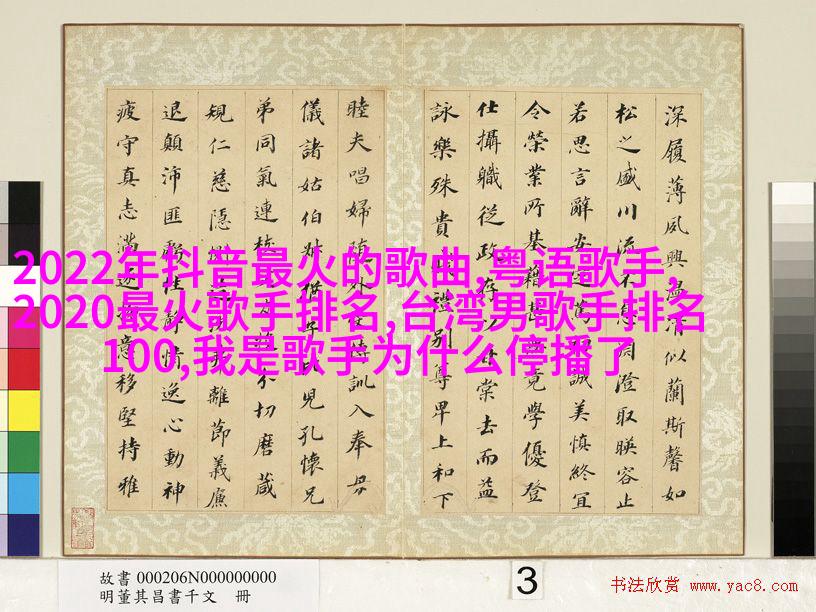 深履薄夙興溫清似蘭斯馨如
松之盛川流不息淵澄取暎容止
若思言辭安定篤初誠美慎終宜
令榮業所基藉甚無竟學優登
仕攝職從政存以甘棠去而益
詠樂殊貴賤禮別尊卑上和下
睦夫唱婦隨外受傅訓入奉母
儀諸姑伯叔猶子比兒孔懷兄
弟同氣連枝交友投分切磨葴
規仁慈隱惻造次弗離節義廉
退顛沛匪虧性靜情逸心動神
疲守真志滿逐物意移堅持雅
2022年抖音最火的歌曲,粤语歌手,
2020最火歌手排名,台湾男歌手排名
100,我是歌手为什么停播了
故書 000206N000000000
明董其昌書千文 冊
3
书法欣赏 www.yac8.com